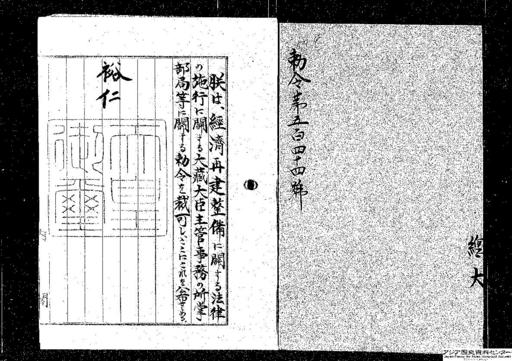 勅令第五百四十四号
経大
朕は、経済再建整備に関する法律
の施行に関する大蔵大臣主管事務の所掌
部局等に関する勅令を裁可し、ここにこれを公布せしめる。
裕仁
天皇御璽
アジア歴史資料センター